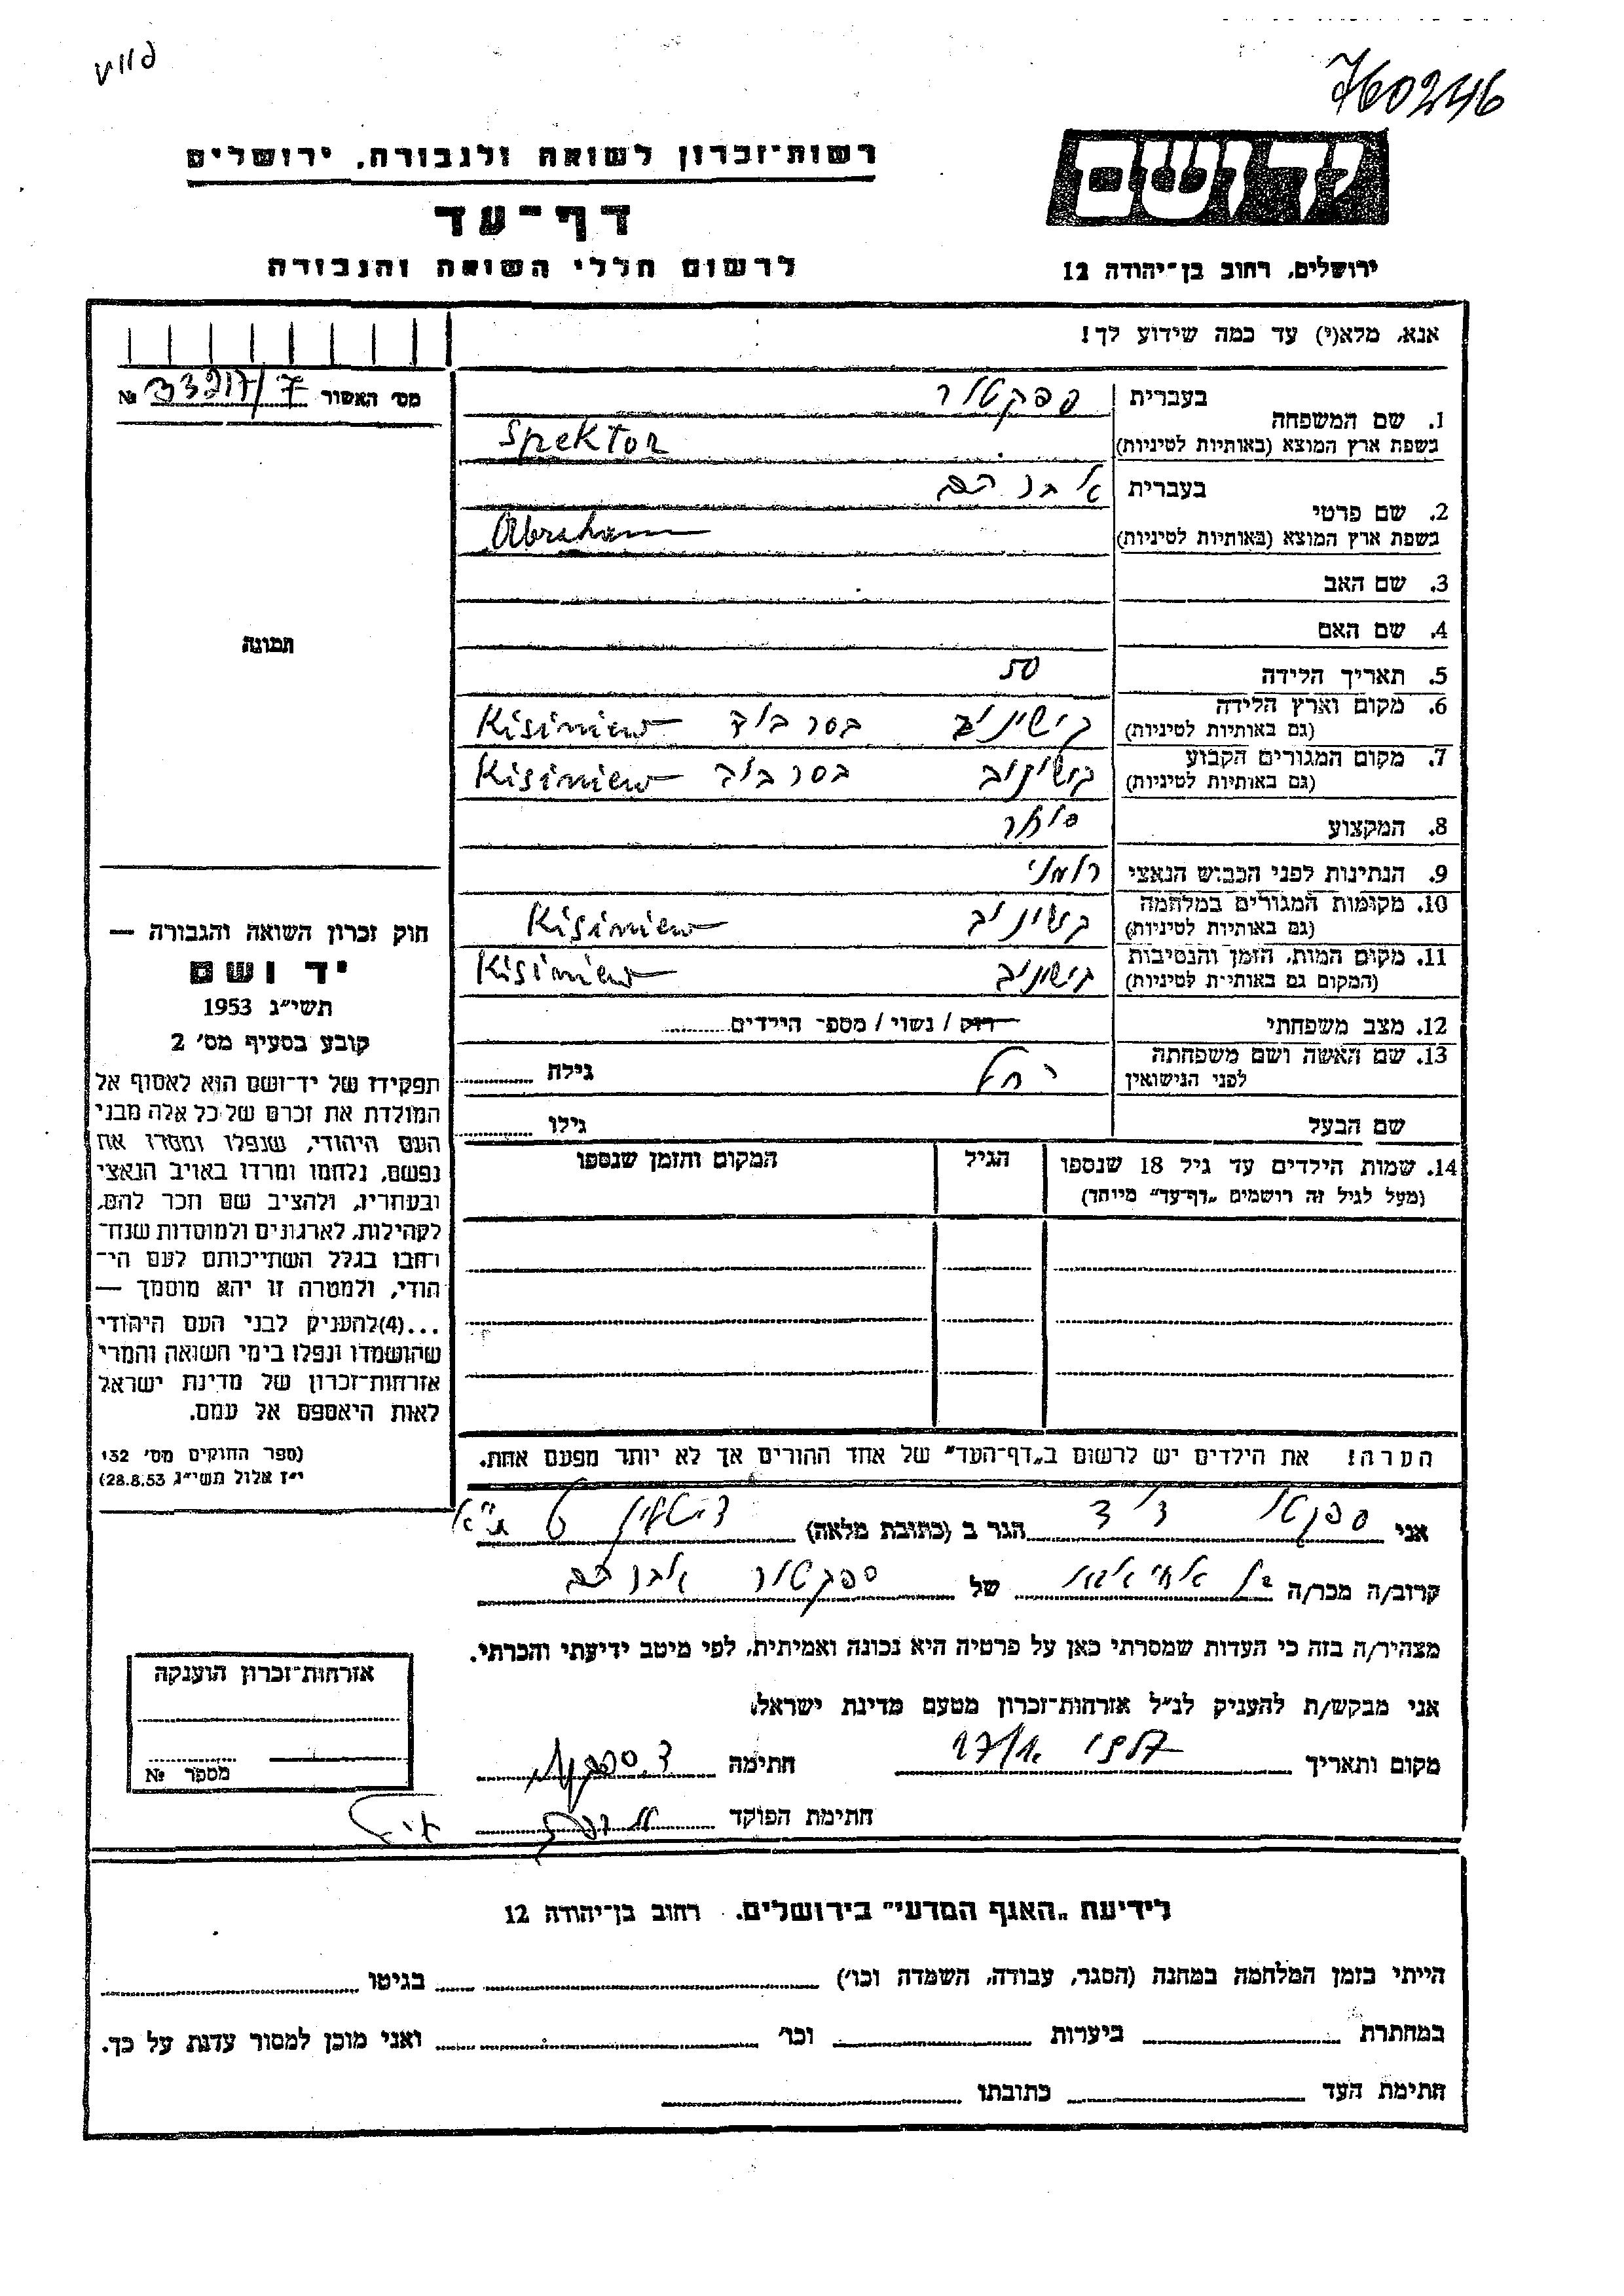 760246
יד ושם
רשות־זכרון לשואה ולגבורה, ירושלים
דף־עד
לרשום חללי השואה והגבורה
ירושלים, רחוב בן־יהודה 12
אנא, מלא(י) עד כמה שידוע לך!
מס׳ האשור 33217/7 №
1. שם המשפחה
בעברית ספקטור
בשפת ארץ המוצא (באותיות לטיניות) Spektor
2. שם פרטי
בעברית אברהם
בשפת ארץ המוצא (באותיות לטיניות) Abraham
3. שם האב
4. שם האם
5. תאריך הלידה 50
6. מקום וארץ הלידה
(גם באותיות לטיניות) קישינוב Kisiniew
7. מקום המגורים הקבוע
(גם באותיות לטיניות) קישינוב Kisiniew
8. המקצוע סוחר
9. הנתינות לפני הכבוש הנאצי רומני
10. מקומות המגורים במלחמה
(גם באותיות לטיניות) קישינוב Kisiniew
11. מקום המות, הזמן והנסיבות
(המקום גם באותיות לטיניות) קישינוב Kisiniew
12. מצב משפחתי רווק / נשוי / מספר הילדים
13. שם האשה ושם משפחתה
לפני הנישואין רחל גילה
שם הבעל גילו
14. שמות הילדים עד גיל 18 שנספו הגיל המקום והזמן שנספו
(מעל לגיל זה רושמים „דף־עד” מיוחד)
הערה: את הילדים יש לרשום ב„דף־העד” של אחד ההורים אך לא יותר מפעם אחת.
תמונה
חוק זכרון השואה והגבורה —
יד ושם
תשי״ג 1953
קובע בסעיף מס׳ 2
תפקידו של יד־ושם הוא לאסוף אל
המולדת את זכרם של כל אלה מבני
העם היהודי, שנפלו ומסרו את
נפשם, נלחמו ומרדו באויב הנאצי
ובעוזריו, ולהציב שם וזכר להם,
לקהילות, לארגונים ולמוסדות שנח־
רחבו בגלל השתייכותם לעם הי־
הודי, ולמטרה זו יהא מוסמך —
...(4)להעניק לבני העם היהודי
שהושמדו ונפלו בימי השואה והמרי
אזרחות־זכרון של מדינת ישראל
לאות היאספם אל עמם.
(ספר החוקים מס׳ 132
י״ז אלול תשי״ג 28.8.53)
אני ספקטור דוד הגר ב (כתובת מלאה) ת״א
קרוב/ה מכר/ה של ספקטור אברהם
מצהיר/ה בזה כי העדות שמסרתי כאן על פרטיה היא נכונה ואמיתית, לפי מיטב ידיעתי והכרתי.
אני מבקש/ת להעניק לנ״ל אזרחות־זכרון מטעם מדינת ישראל.
מקום ותאריך 1957 חתימה ד. ספקטור
חתימת הפוקד
אזרחות־זכרון הוענקה
מספר №
לידיעת „האגף המדעי” בירושלים, רחוב בן־יהודה 12
הייתי בזמן המלחמה במחנה (הסגר, עבודה, השמדה וכו׳) בגיטו
במחתרת ביערות וכו׳ ואני מוכן למסור עדות על כך.
חתימת העד כתובתו